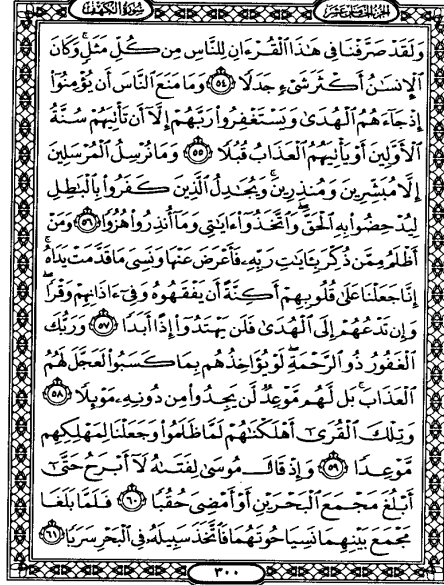 سورة الكهف الجزء الخامس عشر
وَلَقَدْ صَرَّفْنَا فِي هَٰذَا ٱلْقُرْءَانِ لِلنَّاسِ مِن كُلِّ مَثَلٍ ۚ وَكَانَ
ٱلْإِنسَٰنُ أَكْثَرَ شَىْءٍ جَدَلًا ٥٤ وَمَا مَنَعَ ٱلنَّاسَ أَن يُؤْمِنُوٓا۟
إِذْ جَآءَهُمُ ٱلْهُدَىٰ وَيَسْتَغْفِرُوا۟ رَبَّهُمْ إِلَّآ أَن تَأْتِيَهُمْ سُنَّةُ
ٱلْأَوَّلِينَ أَوْ يَأْتِيَهُمُ ٱلْعَذَابُ قُبُلًا ٥٥ وَمَا نُرْسِلُ ٱلْمُرْسَلِينَ
إِلَّا مُبَشِّرِينَ وَمُنذِرِينَ ۚ وَيُجَٰدِلُ ٱلَّذِينَ كَفَرُوا۟ بِٱلْبَٰطِلِ
لِيُدْحِضُوا۟ بِهِ ٱلْحَقَّ ۖ وَٱتَّخَذُوٓا۟ ءَايَٰتِى وَمَآ أُنذِرُوا۟ هُزُوًا ٥٦ وَمَنْ
أَظْلَمُ مِمَّن ذُكِّرَ بِـَٔايَٰتِ رَبِّهِۦ فَأَعْرَضَ عَنْهَا وَنَسِىَ مَا قَدَّمَتْ يَدَاهُ ۚ
إِنَّا جَعَلْنَا عَلَىٰ قُلُوبِهِمْ أَكِنَّةً أَن يَفْقَهُوهُ وَفِىٓ ءَاذَانِهِمْ وَقْرًا ۖ
وَإِن تَدْعُهُمْ إِلَى ٱلْهُدَىٰ فَلَن يَهْتَدُوٓا۟ إِذًا أَبَدًا ٥٧ وَرَبُّكَ
ٱلْغَفُورُ ذُو ٱلرَّحْمَةِ ۖ لَوْ يُؤَاخِذُهُم بِمَا كَسَبُوا۟ لَعَجَّلَ لَهُمُ
ٱلْعَذَابَ ۚ بَل لَّهُم مَّوْعِدٌ لَّن يَجِدُوا۟ مِن دُونِهِۦ مَوْئِلًا ٥٨
وَتِلْكَ ٱلْقُرَىٰٓ أَهْلَكْنَٰهُمْ لَمَّا ظَلَمُوا۟ وَجَعَلْنَا لِمَهْلِكِهِم
مَّوْعِدًا ٥٩ وَإِذْ قَالَ مُوسَىٰ لِفَتَىٰهُ لَآ أَبْرَحُ حَتَّىٰٓ
أَبْلُغَ مَجْمَعَ ٱلْبَحْرَيْنِ أَوْ أَمْضِىَ حُقُبًا ٦٠ فَلَمَّا بَلَغَا
مَجْمَعَ بَيْنِهِمَا نَسِيَا حُوتَهُمَا فَٱتَّخَذَ سَبِيلَهُۥ فِى ٱلْبَحْرِ سَرَبًا ٦١
٣٠٠